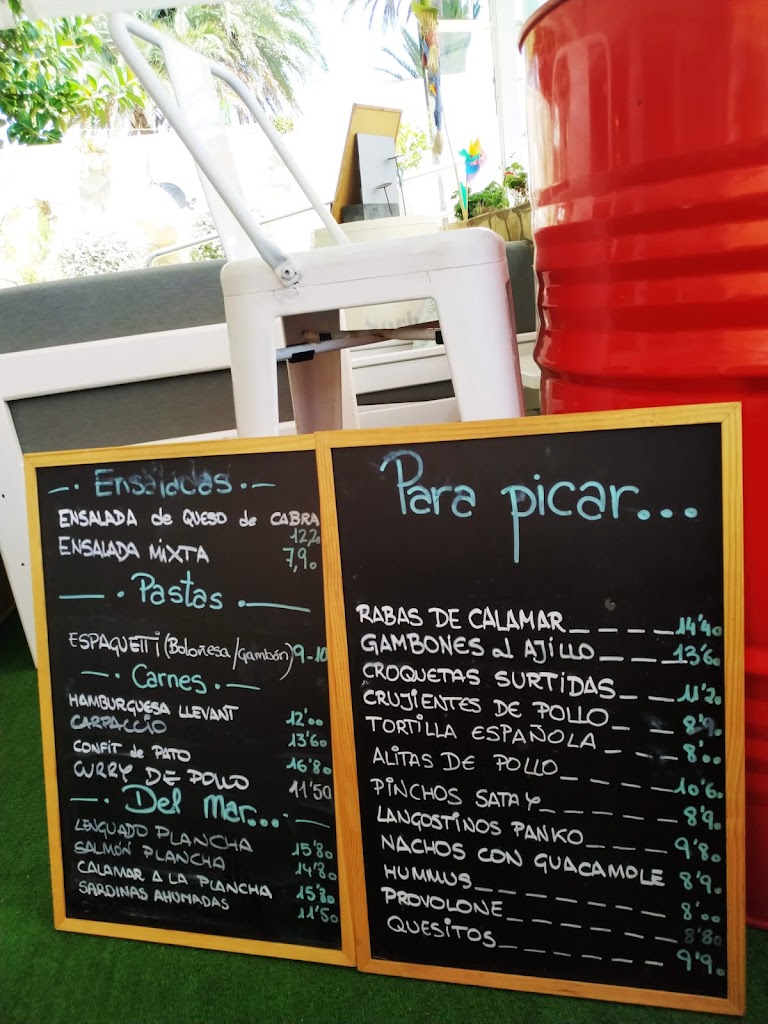 Ensaladas
ENSALADA de QUESO de CABRA
12,20
ENSALADA MIXTA 7,90
Pastas
ESPAGUETTI (Boloñesa/Gambón) 9-10
Carnes
HAMBURGUESA LLEVANT 12'00
CARPACCIO 13'60
CONFIT de PATO 16'80
CURRY DE POLLO 11'50
Del mar...
LENGUADO PLANCHA 15'80
SALMÓN PLANCHA 14'80
CALAMAR A LA PLANCHA 15'80
SARDINAS AHUMADAS 11'50
Para picar...
RABAS DE CALAMAR 14'40
GAMBONES al AJILLO 13'60
CROQUETAS SURTIDAS 11'20
CRUJIENTES DE POLLO 8'90
TORTILLA ESPAÑOLA 8'00
ALITAS DE POLLO 10'60
PINCHOS SATAY 8'90
LANGOSTINOS PANKO 9'80
NACHOS CON GUACAMOLE 8'90
HUMMUS 8'00
PROVOLONE 8'80
QUESITOS 9'90